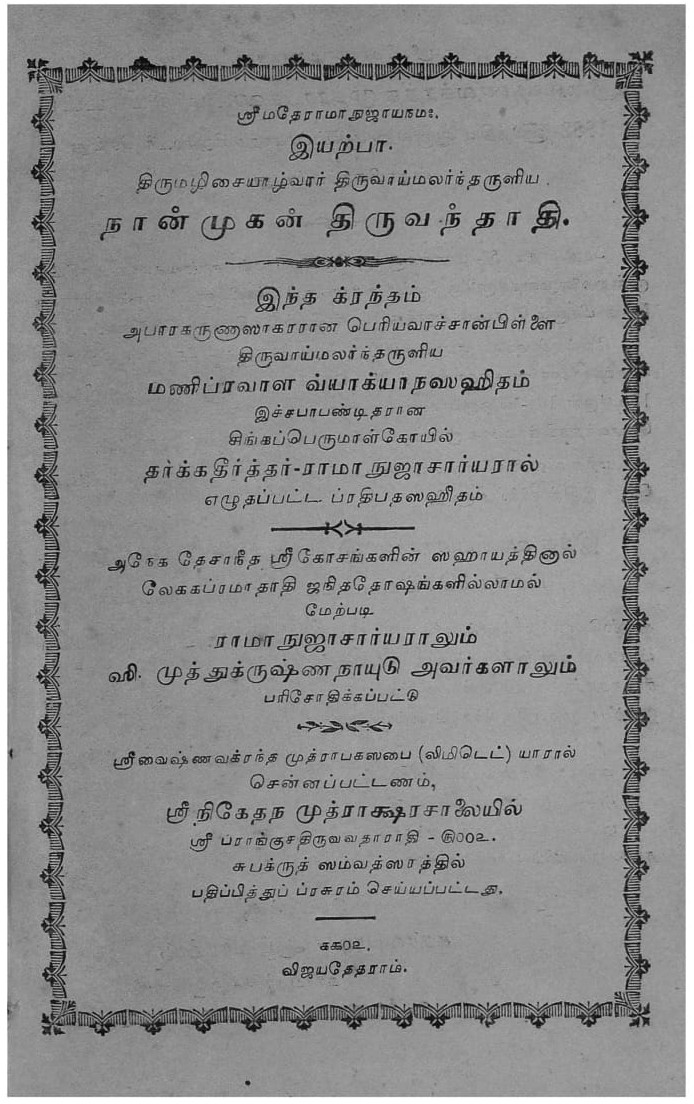 ஸ்ரீமதேராமாநுஜாயநம:.
இயற்பா.
திருமழிசையாழ்வார் திருவாய்மலர்ந்தருளிய
நான்முகன் திருவந்தாதி.
இந்த க்ரந்தம்
அபாரகருணாஸாகரரான பெரியவாச்சான்பிள்ளை
திருவாய்மலர்ந்தருளிய
மணிப்ரவாள வ்யாக்யாநஸஹிதம்
இச்சபாபண்டிதரான
சிங்கப்பெருமாள்கோயில்
தர்க்கதீர்த்தர்-ராமாநுஜாசார்யரால்
எழுதப்பட்ட ப்ரதிபதஸஹிதம்
அநேக தேசாநீத ஸ்ரீகோசங்களின் ஸஹாயத்தினால்
லேககப்ரமாதாதி ஜநிததோஷங்களில்லாமல்
மேற்படி
ராமாநுஜாசார்யராலும்
ஸி. முத்துக்ருஷ்ணநாயுடு அவர்களாலும்
பரிசோதிக்கப்பட்டு
ஸ்ரீவைஷ்ணவக்ரந்த முத்ராபகஸபை (லிமிடெட்) யாரால்
சென்னப்பட்டணம்,
ஸ்ரீநிகேதந முத்ராக்ஷரசாலையில்
ஸ்ரீ ப்ராங்குசதிருவவதாராதி - ௫௦௦௨.
சுபக்ருத் ஸம்வத்ஸரத்தில்
பதிப்பித்துப் ப்ரசுரம் செய்யப்பட்டது.
௧௯௦௨.
விஜயதேதராம்.